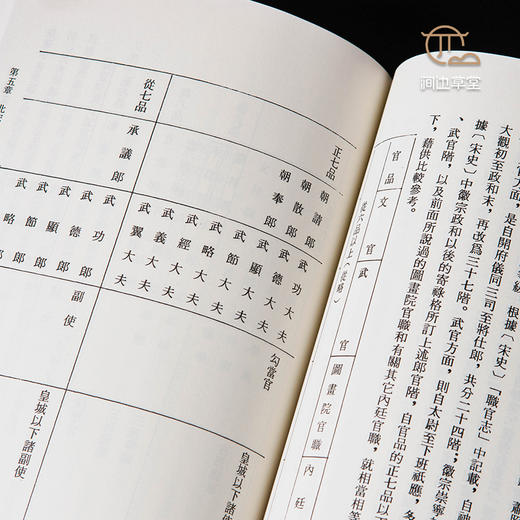 洄边草堂
統 根據〔宋史〕「職官志」中記載，自神
官方面，是自開府儀同三司至將仕郎，共分二十四階；徽宗崇寧
大觀初至政和末，再改為三十七階。武官方面，則自太尉至下班祗應，多
據〔宋史〕中徽宗政和以後的寄祿格所訂上述郎官階，自官品的正七品以
、武官階，以及前面所說過的圖畫院官職和有關其它內廷官職，就相當相等
下，藉供比較參考。
官品
文官
武官
圖畫院官職
內廷
（從六品以上從略）
正七品
朝請郎
朝散郎
朝奉郎
武功大夫
武德大夫
武顯大夫
武節大夫
武略大夫
武經大夫
武義大夫
武翼大夫
勾當官
皇城以下諸
從七品
承議郎
武功郎
武德郎
武顯郎
武節郎
武略郎
副使
皇城以下諸副使
第五章